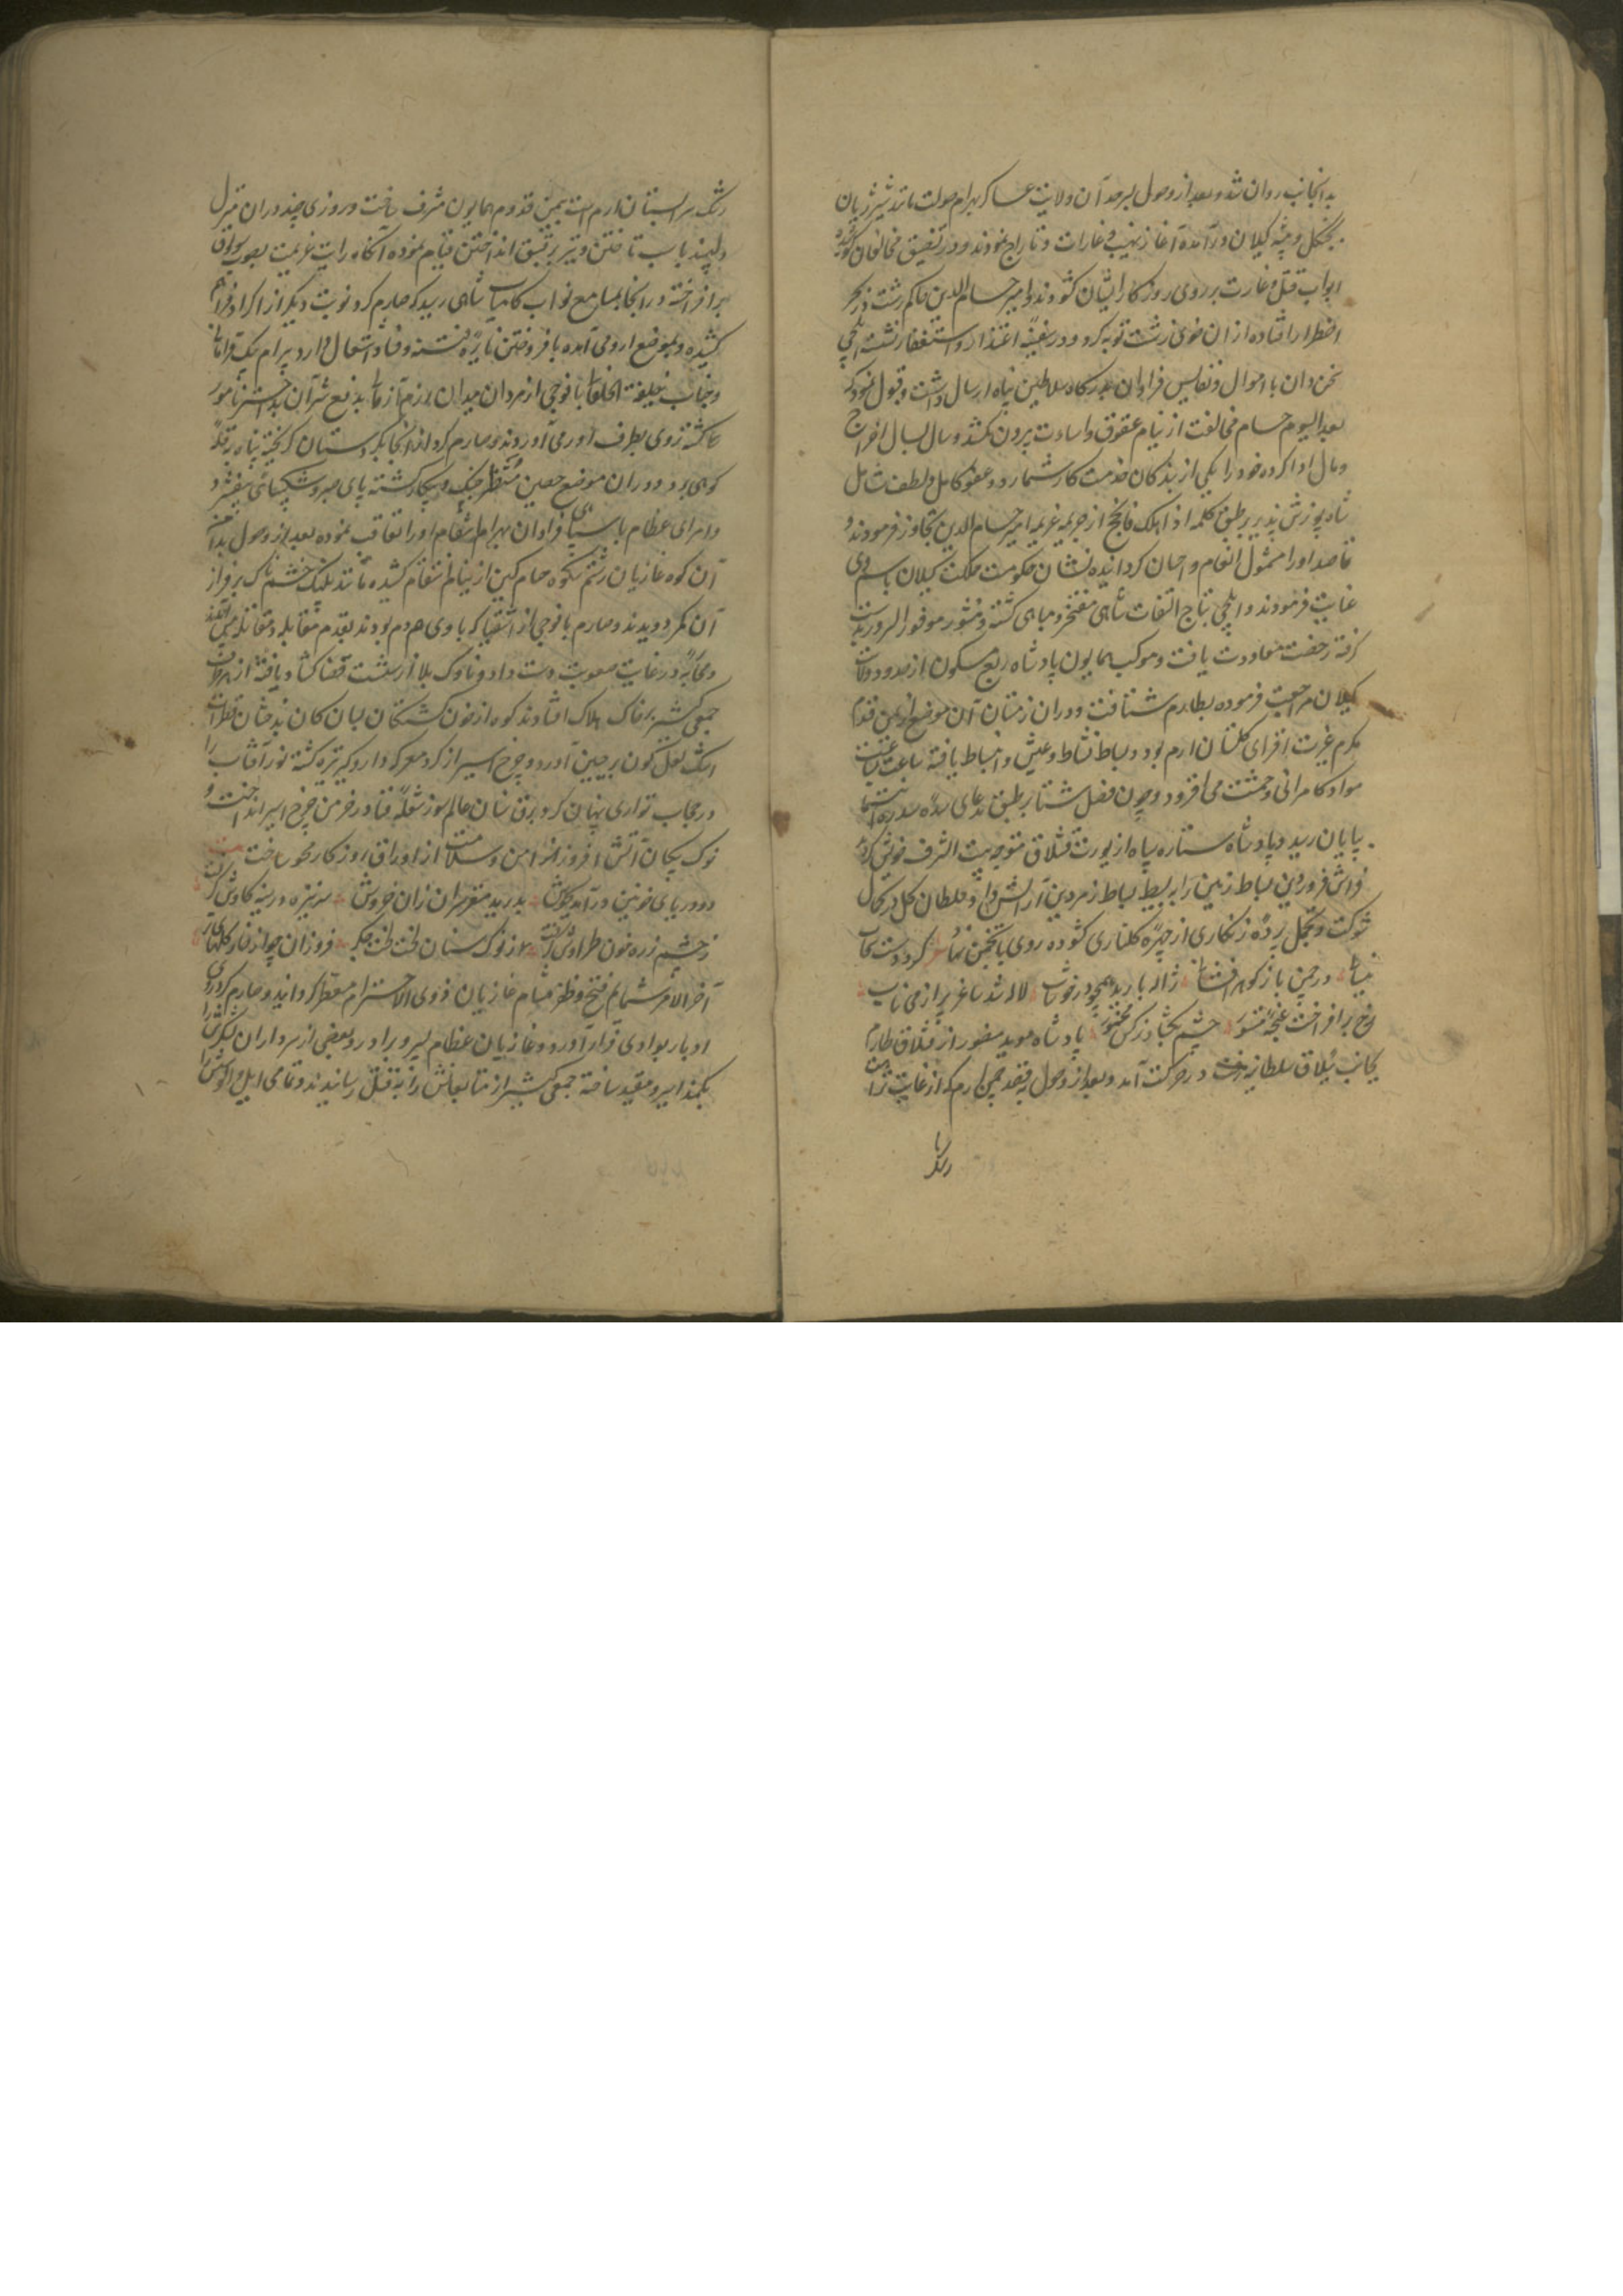 بدانجانب روان شد و بعد از وصول بسرحد آن ولایت عساکر بهرام صولت مانند شیر ژیان
بجنگل و بیشه کیلان درآمده آغاز نهب و غارات و تاراج نمودند و در تضییق مخالفان کوشیده
ابواب قتل و غارت بر روی روزکار ایشان کشودند و امیر حسام الدین حاکم رشت در بحر
اضطرار افتاده از ان خوی زشت توبه کرد و در سفینه اعتذار و استغفار نشسته ایلچی
سخن دان با اموال و نفایس فراوان بدرکاه سلاطین پناه ارسال داشت و قبول نمود که
بعد الیوم حسام مخالفت از نیام عقوق و اساءت بیرون نکشد و سال بسال اخراج
و مال ادا کرده خود را یکی از بندکان خدمت کار شمارد و عفو کامل و لطف شامل
شاه پوزش پذیر بر طبق کلمه اذا ملکت فاسجح از جریمه امیر حسام الدین تجاوز فرمودند و
قاصد او را مشمول انعام و احسان کردانیده نشان حکومت مملکت کیلان باسم وی
عنایت فرمودند و ایلچی بتاج التفات شاهی مفتخر و مباهی کشته و منشور موفور السرور بدست
کرفته رخصت معاودت یافت و موکب همایون پادشاه ربع مسکون از حدود ولایت
کیلان مراجعت فرموده بطارم شتافت و در ان زمستان آن موضع از یمن قدم
مکرم غیرت افزای کلستان ارم بود و بساط نشاط و عیش و انبساط یافته ساعت بساعت
مواد کامرانی و حشمت می افزود و چون فصل شتا بر طبق مدعای سده سدره انتما
بپایان رسید و پادشاه ستاره سپاه از یورت قشلاق متوجه بیت الشرف خویش کردید
فراش فروردین بساط زمین را به بسیط بساط زمردین آرایش داد و سلطان کل در کمال
شوکت و تجمل پرده زنکاری از چهره کلناری کشوده روی بانجمن نهاد کرد دست سحاب
نیسانی در چمن باز کوهر افشانی ژاله بارید همچو در خوشاب لاله شد ساغر پر از می ناب
رخ برافراخت غنچه مستور چشم بکشاد نرکس مخمور پادشاه موید منصور از قشلاق طارم
بجانب ییلاق سلطانیه در حرکت آمد و بعد از وصول رفیقه چمن ارم که از غایت نزاهت
رشک
رشک سرابستان ارم است بیمن قدوم همایون مشرف ساخت و روزی چند در ان منزل
دلپسند باسب تاختن و تیر بر قبق انداختن قیام نموده آنکاه رایت عزیمت بصوب ییلاق
برافراخته و در انجا بمسامع نواب کامیاب شاهی رسید که صارم کرد نوبت دیکر از اکراد فراهم
کشیده و بموضع ارومی آمده بافروختن نایره فتنه و فساد اشتغال دارد بیرام بیک قرامانی
و جناب خلیفة الخلفا با فوجی از مردان میدان رزم آزمای بدفع شر آن بداختر نامزد
کشته روی بطرف ارومی آوردند و صارم کرد از انجا بکردستان کریخته پناه بقله
کوهی برد و در ان موضع حصین منتظر جنک و پیکار کشته پای صبر و شکیبائی بیفشرد
و امرای عظام با سپاهی فراوان بهرام انتقام او را تعاقب نموده بعد از وصول بدامن
آن کوه غازیان رستم شکوه حسام کین از نیام انتقام کشیده مانند پلنک خشمناک بر فراز
آن کمر دویدند و صارم با فوجی از اشقیا که با وی همدم بودند بقدم مقابله و مقاتله پیش آمده
و محاربه در غایت صعوبت دست داد و ناوک بلا از شست قضا کشاد یافته از هر طرف
جمعی کثیر بر خاک هلاک افتادند کوه از خون کشتکان بسان کان بدخشان قطرات
اشک لعل کون بر جبین آورد و چرخ اسیر از کرد معرکه دار و کیر تیره کشته نور آفتاب را
در حجاب تواری پنهان کرد برق سنان عالم سوز شعله فنا در خرمن چرخ اسیر انداخت و
نوک پیکان آتش افروز اثر امن و سلامت از اوراق روزکار محو ساخت
دو دریای خونین درآمد بجوش بدرید مغز سران زان خروش سر نیزه در سینه کاوش کرفت
ز چشم زره خون طراوش کرفت از نوک سنان لخت لخت جکر فروزان چو از نار
آخر الامر شمایم فتح و ظفر مشام غازیان ذوی الاحترام معطر کردانید و صارم کرد روی
ادبار بوادی فرار آورد و غازیان عظام پسر و برادر و بعضی از سرداران لشکرش را
بکمند اسیر و مقید ساخته جمعی کثیر از متابعانش را به قتل رسانیدند و تمامی ایل و الوسش را